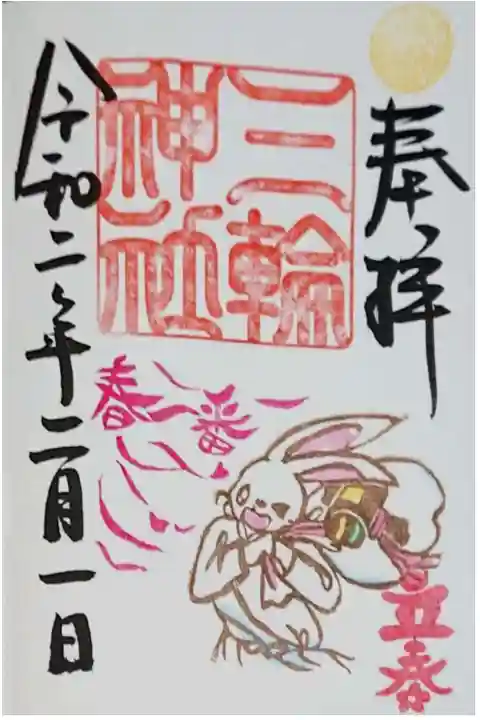 奉拝
三輪
神社
春一番
立春
令和二年二月一日